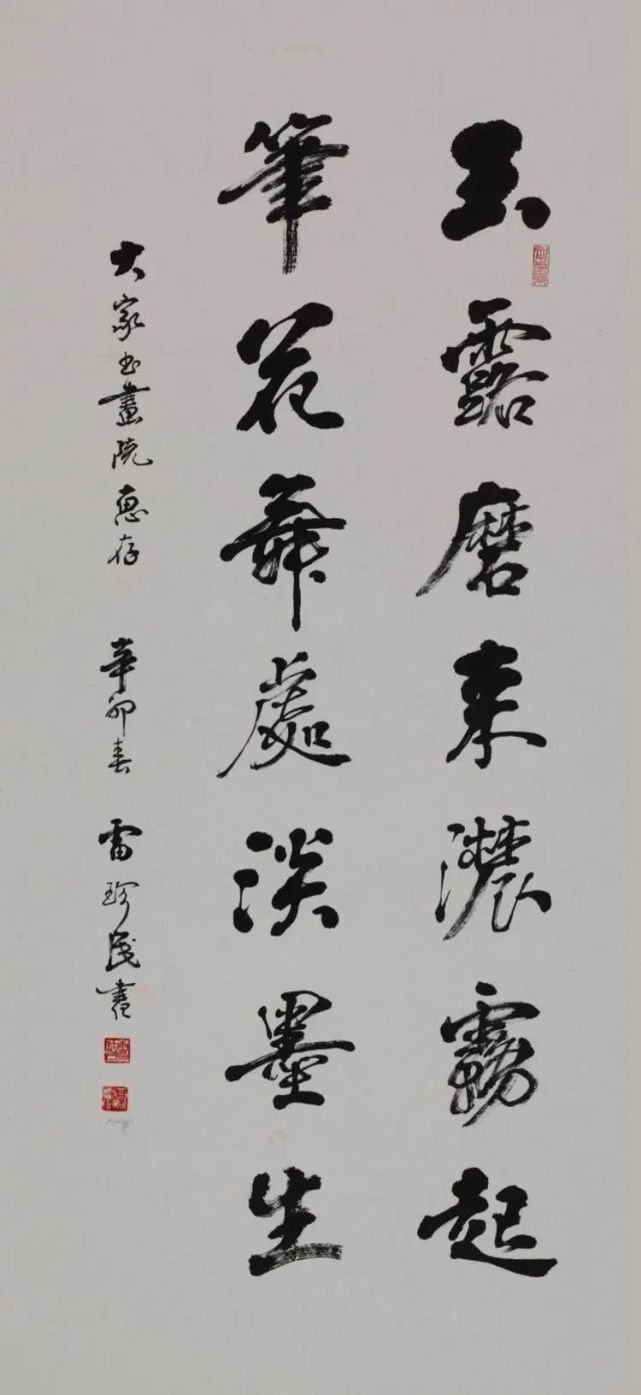 玉露磨来濃霧起
筆花舞處淡墨生
大家书畫院惠存
辛卯春
雷珍民書